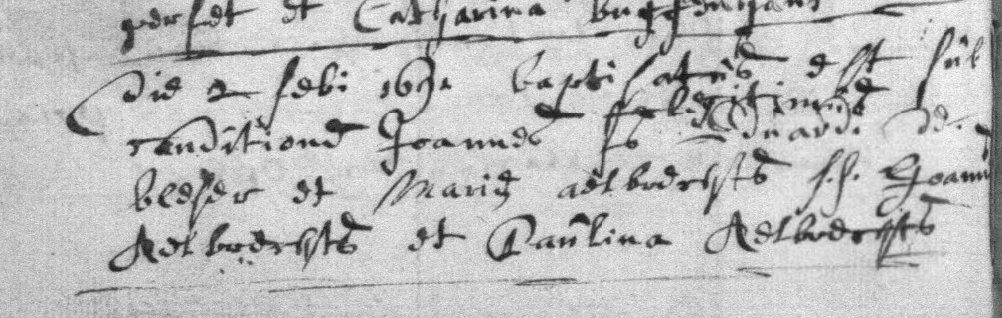 et Catharina
Die 2 febr 1691 baptisatus est sub
conditione Joannes fs legitimus Eduardi de
bleser et Mariæ aelbrechts s.s. Joann
Aelbrechts et Paulina Aelbrechts